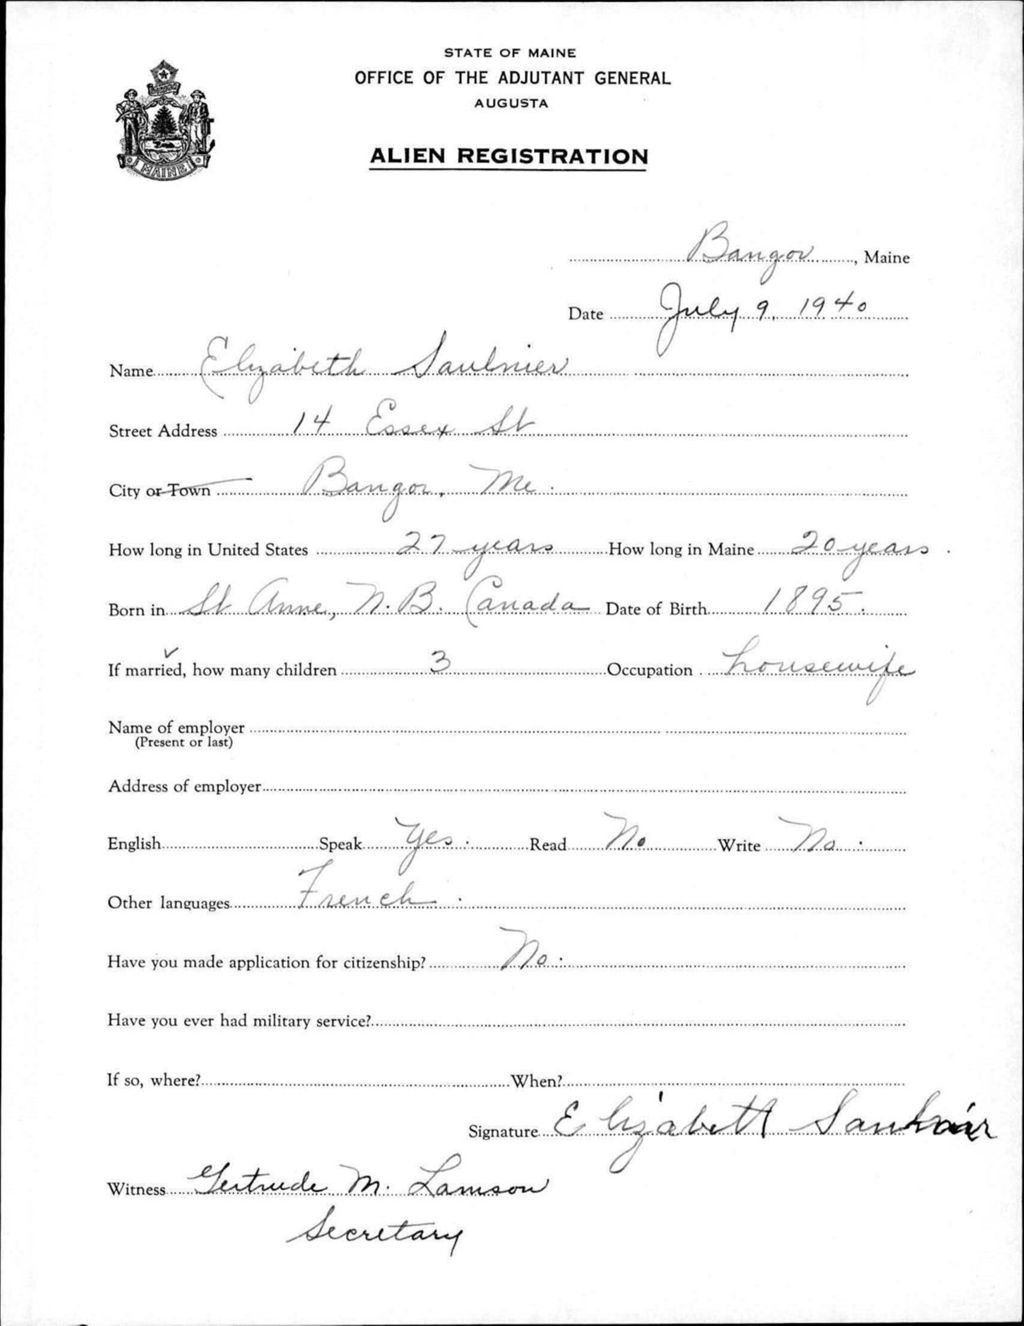 STATE OF MAINE
OFFICE OF THE ADJUTANT GENERAL
AUGUSTA
ALIEN REGISTRATION
MAINE
Bangor, Maine
Date July 9, 1940
Name Elizabeth Saulnier
Street Address 14 Essex St
City or Town Bangor, Me.
How long in United States 27 years How long in Maine 20 years.
Born in St Anne, N.B. Canada Date of Birth 1895.
If married, how many children 3 Occupation housewife
Name of employer
(Present or last)
Address of employer
English Speak Yes. Read No Write No.
Other languages French.
Have you made application for citizenship? No.
Have you ever had military service?
If so, where? When?
Signature Elizabeth
Witness Gertrude M. Lamson
Secretary